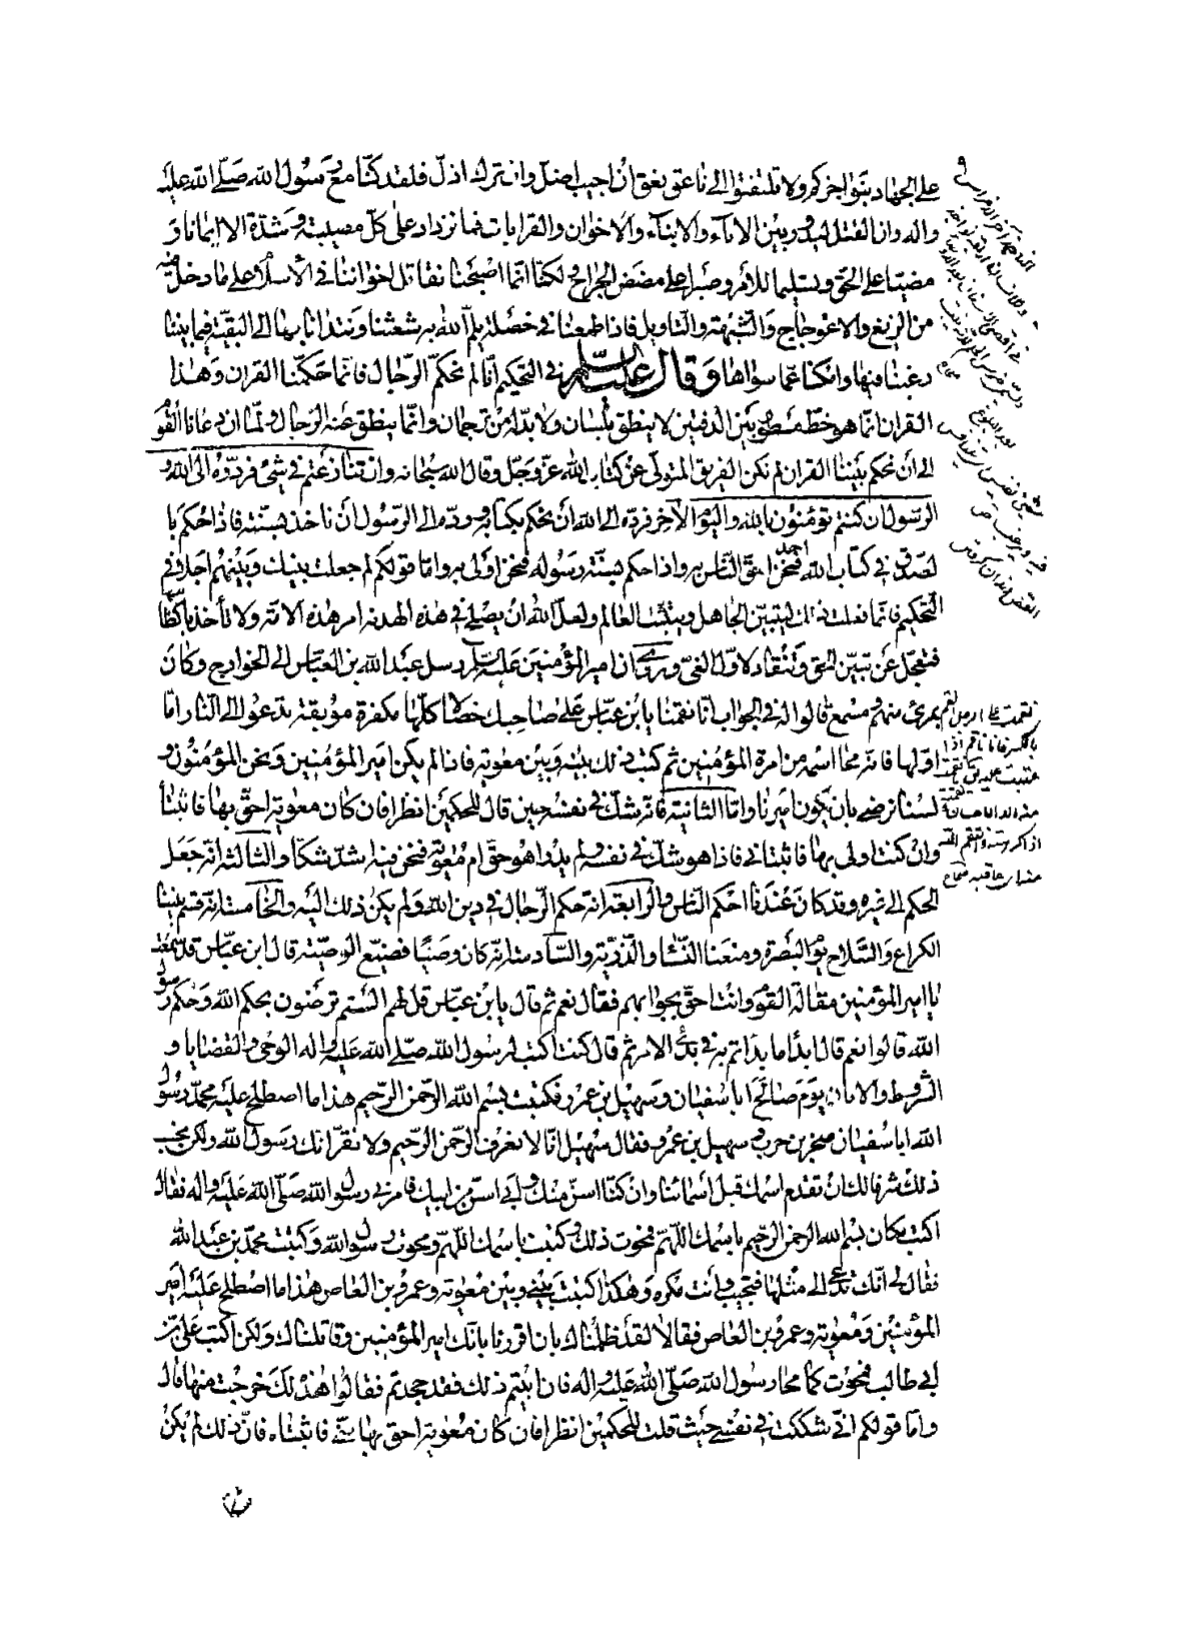 على الجهاد بنواجذكم ولا تلتفتوا إلى ناعق نعق أن أجيب أضل وان ترك اذل فلقد كنا مع رسول الله صلى الله عليه
واله وان القتل ليدور بين الاباء والابناء والاخوان والقرابات فما نزداد على كل مصيبة وشدة الا ايمانا و
مضيا على الحق وتسليما للأمر وصبرا على مضض الجراح ولكنا انما اصبحنا نقاتل اخواننا في الاسلام على ما دخل فيه
من الزيغ والاعوجاج والشبهة والتاويل فاذا طمعنا في خصلة يلم الله به شعثنا ونتدانا بها الى البقية فيما بيننا
رغبنا فيها وامسكنا عما سواها وقال عليه السلم في التحكيم انا لم نحكم الرجال فانما حكمنا القران وهذا
القران انما هو خط مسطور بين الدفتين لا ينطق بلسان ولا بد له من ترجمان وانما ينطق عنه الرجال ولما ان دعانا القوم
الى أن نحكم بيننا القران لم نكن الفريق المتولى عن كتاب الله عز وجل وقال الله سبحانه وان تنازعتم في شئ فردوه الى الله و
الرسول ان كنتم تؤمنون بالله واليوم الآخر فرده الى الله أن يحكم بكتابه ورده الى الرسول أن ناخذ بسنته فاذا حكم با
لصدق في كتاب الله فنحن احق الناس به واذا حكم بسنة رسوله فنحن اولى به واما قولكم لم جعلت بينك وبينهم اجلا في
التحكيم فانما فعلت ذلك ليتبين الجاهل ويتثبت العالم ولعل الله ان يصلح في هذه الهدنه امر هذه الامة ولا تأخذ باكظامها
فتعجل عن تبين الحق وتنقاد لاول الغي وروي ان امير المؤمنين عليه السلم ارسل عبد الله بن العباس الى الخوارج وكان
بمرئ منهم ومسمع قالوا له في الجواب انا نقمنا يا بن عباس على صاحبك خصالا كلها مكفرة موبقة تدعو الى النار اما
اولها فانه محا اسمه من امرة المؤمنين ثم كتب ذلك بينه وبين معوية فاذا لم يكن امير المؤمنين ونحن المؤمنون و
لسنا نرضى بان يكون اميرنا واما الثانية فانه شك في نفسه حين قال للحكمين انظرا فان كان معوية احق بها فاثبتا
وان كنت اولى بها فاثبتاني فاذا هو شك في نفسه ولم يدر اهو حق ام معوية فنحن فيه اشد شكا والثالثة انه جعل
الحكم الى غيره وقد كان عندنا احكم الناس والرابعة انه حكم الرجال في دين الله ولم يكن ذلك اليه والخامسة انه قسم بيننا
الكراع والسلاح يوم البصرة ومنعنا النساء والذرية والسادسة انه كان وصيا فضيع الوصية قال ابن عباس قد سمعت
يا امير المؤمنين مقالة القوم وانت احق بجوابهم فقال نعم ثم قال يا بن عباس قل لهم الستم ترضون بحكم الله وحكم رسول
الله قالوا نعم قال ابدأ ما بداتم به في بدئ الامر ثم قال كنت اكتب لرسول الله صلى الله عليه واله الوحى والقضايا و
الشروط والامان يوم صالح ابا سفيان وسهيل بن عمرو فكتبت بسم الله الرحمن الرحيم هذا ما اصطلح عليه محمد رسول
الله ابا سفيان صخر بن حرب و سهيل بن عمرو فقال سهيل انا لا نعرف الرحمن الرحيم ولا نقر انك رسول الله ولكن نحسب
ذلك شرفا لك ان تقدم اسمك قبل اسمائنا وان كنا اسن منك وابي اسن من ابيك فامرني رسول الله صلى الله عليه واله فقال
اكتب مكان بسم الله الرحمن الرحيم باسمك اللهم فمحوت ذلك وكتبت باسمك اللهم ومحوت رسول الله وكتبت محمد بن عبد الله
فقال لي انك تدعى الى مثلها فتجيب وانت مكره وهكذا كتبت بيني وبين معوية وعمرو بن العاص هذا ما اصطلح عليه امير
المؤمنين ومعوية وعمرو بن العاص فقالا لقد ظلمناك بان اقررنا بانك امير المؤمنين وقاتلناك ولكن اكتب على بن
ابي طالب فمحوت كما محا رسول الله صلى الله عليه واله فان ابيتم ذلك فقد جحدتم فقالوا هذه لك خرجت منها قال
واما قولكم اني شككت في نفسي حيث قلت للحكمين انظرا فان كان معوية احق بها مني فاثبتاه فان ذلك لم يكن